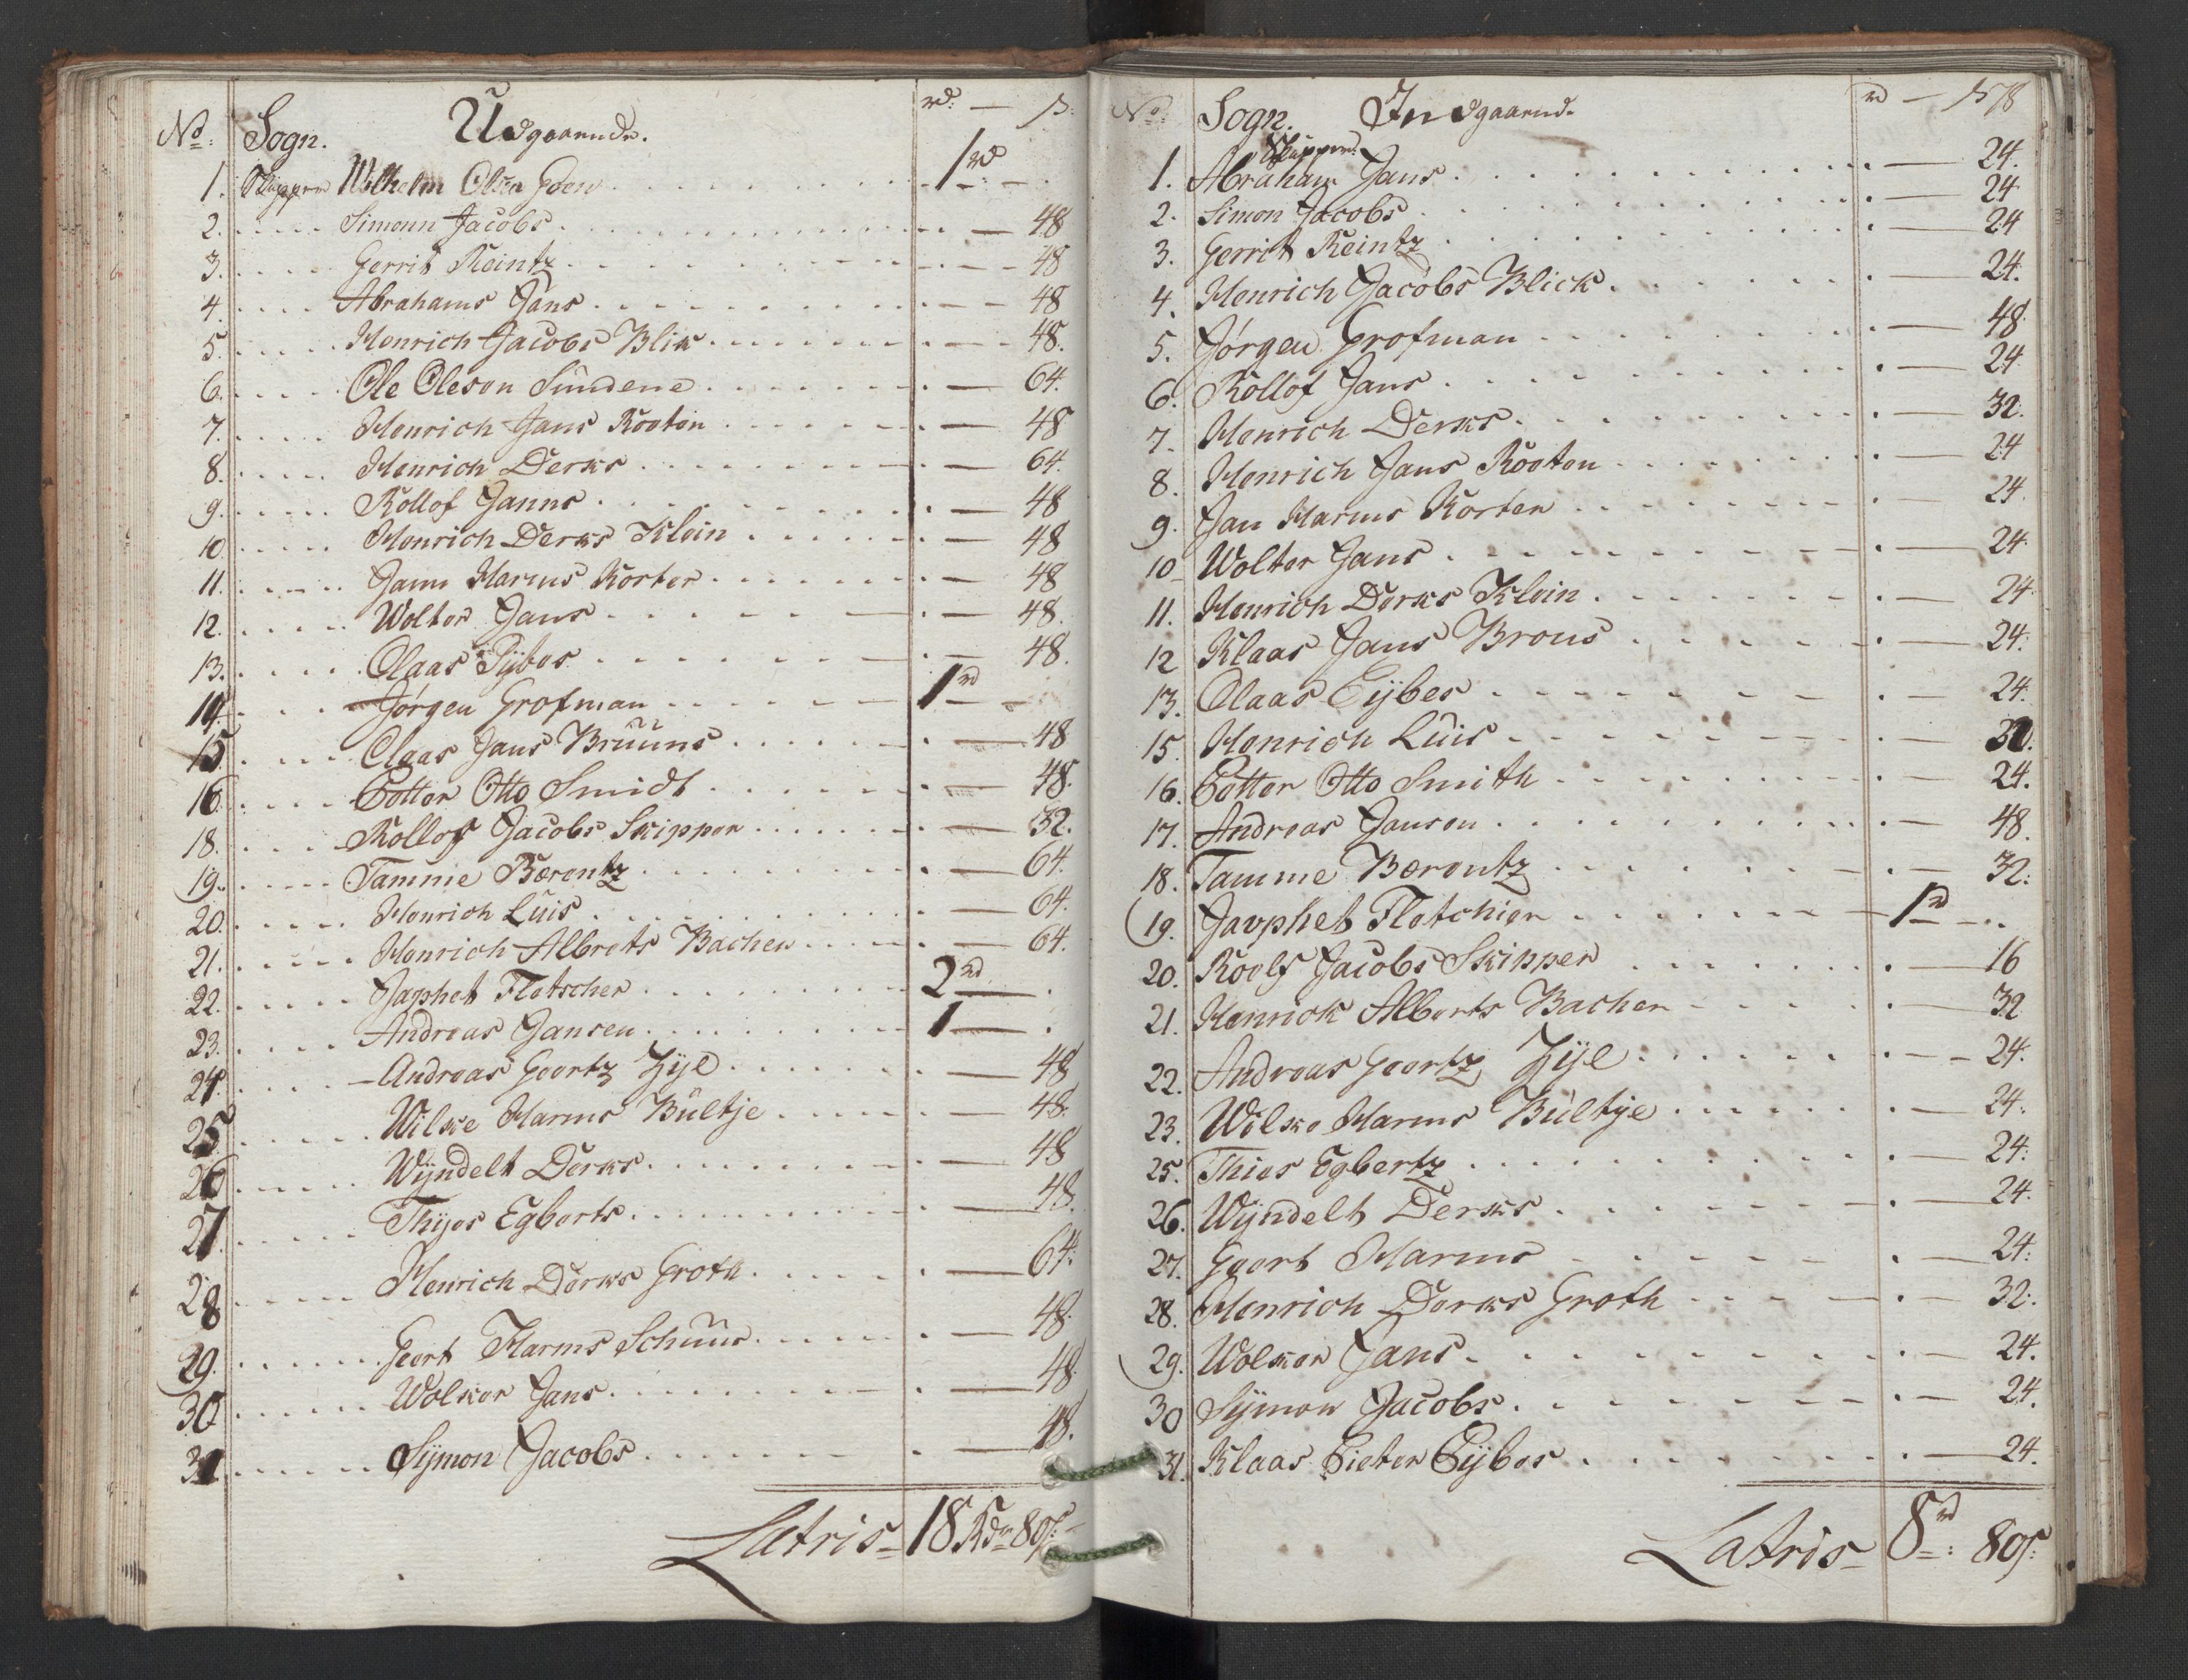 No: Sogn. Udgaaende. rd: — ß:
1. Skipper Wilhelm Olsen Goen 1 rd — .
2. Simonn Jacobs — 48
3. Gerrit Reintz — 48
4. Abrahams Jans — 48
5. Henrich Jacobs Blik — 48.
6. Ole Oleson Sundene — 64.
7. Henrich Jans Rooton — 48
8. Henrich Derks — 64.
9. Rollof Janns — 48
10. Henrich Derks Klein — 48
11. Jann Harms Korter — 48
12. Wolter Jans — 48.
13. Claas Pijbes — 48.
14. Jørgen Grofman 1 rd —
15. Claas Jans Bruuns — 48
16. Potter Otto Smidt — 48.
18. Rollof Jacobs Skipper — 32.
19. Tamme Bærentz — 64.
20. Henrich Luis — 64.
21. Henrich Albrets Bachen — 64.
22. Japhet Fletscher 2 rd — .
23. Andreas Jansen 1 — .
24. Andreas Geertz Zijl — 48
25. Wilke Harms Bultje — 48.
26. Wijndelt Derks — 48
27. Thijes Egberts — 48.
28. Henrich Derks Groth — 64.
29. Geert Harms Schuur — 48.
30. Wolker Jans — 48
31. Sijmon Jacobs — 48.
Latris 18 Rdr 80 ß:
No: Sogn. Indgaaend. rd — ß 78
Skipper
1. Abraham Jans — 24.
2. Simon Jacobs — 24
3. Gerrit Reintz — 24
4. Henrich Jacobs Blick — 24.
5. Jørgen Grofman — 48
6. Rollof Jans — 24
7. Henrich Derks — 32.
8. Henrich Jans Rooton — 24
9. Jan Harms Korter — 24
10 Wolter Jans — 24
11. Henrich Derks Klein — 24
12 Klaas Jans Brons — 24.
13. Claas Eijbes — 24.
15. Henrich Luis — 32.
16. Potter Otto Smith — 24.
17. Andreas Jansen — 48.
18. Tamme Bærentz — 32.
19. Javphet Fletchier 1 rd — .
20. Roolf Jacobs Skipper — 16
21. Henrick Alberts Bacher — 32
22. Andreas Geertz Zijl — 24.
23. Wilke Harms Bultje — 24.
25. Thies Egbertz — 24.
26. Wijndelt Derks — 24.
27. Geert Harms — 24.
28. Henrich Derks Groth — 32.
29. Wolker Jans — 24.
30 Sijmon Jacobs — 24.
31. Klaas Pieter Eijbes — 24.
Latris 8 rd 80 ß: